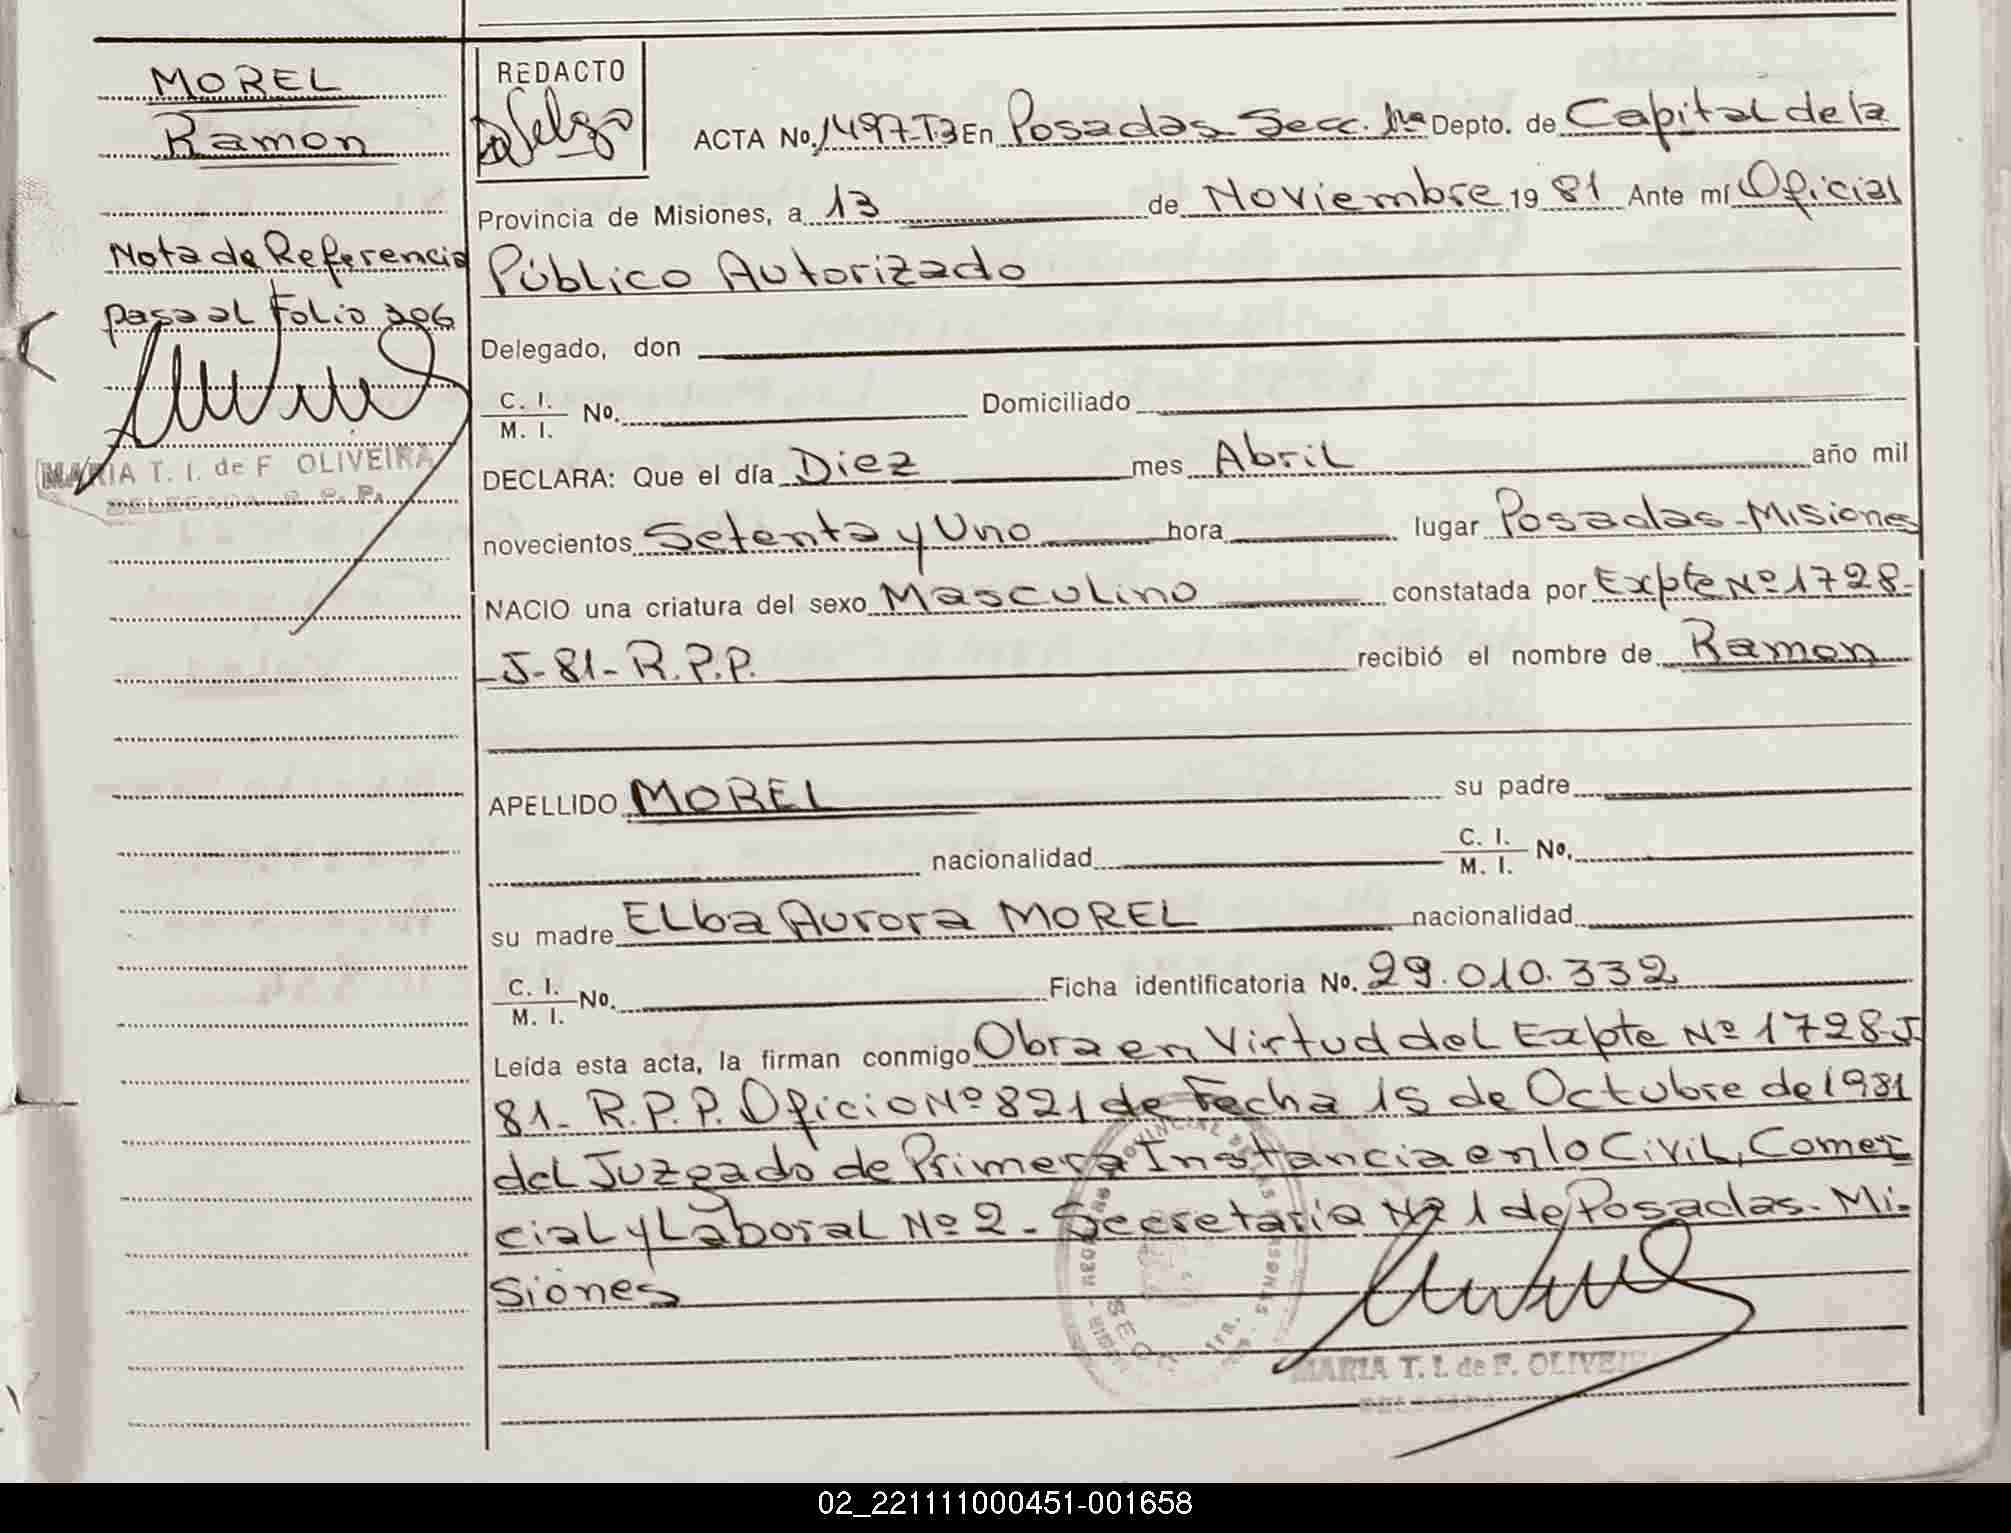 MOREL
Ramon
Nota de Referencia
pasa al Folio 306
MARIA T. I. de F OLIVEIRA
DELEGADA R. P. P.
REDACTO
ACTA No. 1497-T3 En Posadas Secc. 1ra Depto. de Capital de la
Provincia de Misiones, a 13 de Noviembre 19 81 Ante mí Oficial
Público Autorizado
Delegado, don
C. I.
M. I. No. Domiciliado
DECLARA: Que el día Diez mes Abril año mil
novecientos Setenta y Uno hora lugar Posadas-Misiones
NACIO una criatura del sexo Masculino constatada por Expte Nº 1728-
J-81-R.P.P. recibió el nombre de Ramon
APELLIDO MOREL su padre
nacionalidad C. I.
M. I. No.
su madre Elba Aurora MOREL nacionalidad
C. I.
M. I. No. Ficha identificatoria No. 29.010.332
Leída esta acta, la firman conmigo Obra en Virtud del Expte Nº 1728-J-
81- R.P.P. Oficio Nº 821 de Fecha 15 de Octubre de 1981
del Juzgado de Primera Instancia en lo Civil, Comer
cial y Laboral Nº 2 - Secretaria Nº 1 de Posadas- Mi-
siones
MARIA T. I. de F. OLIVEI
02_221111000451-001658